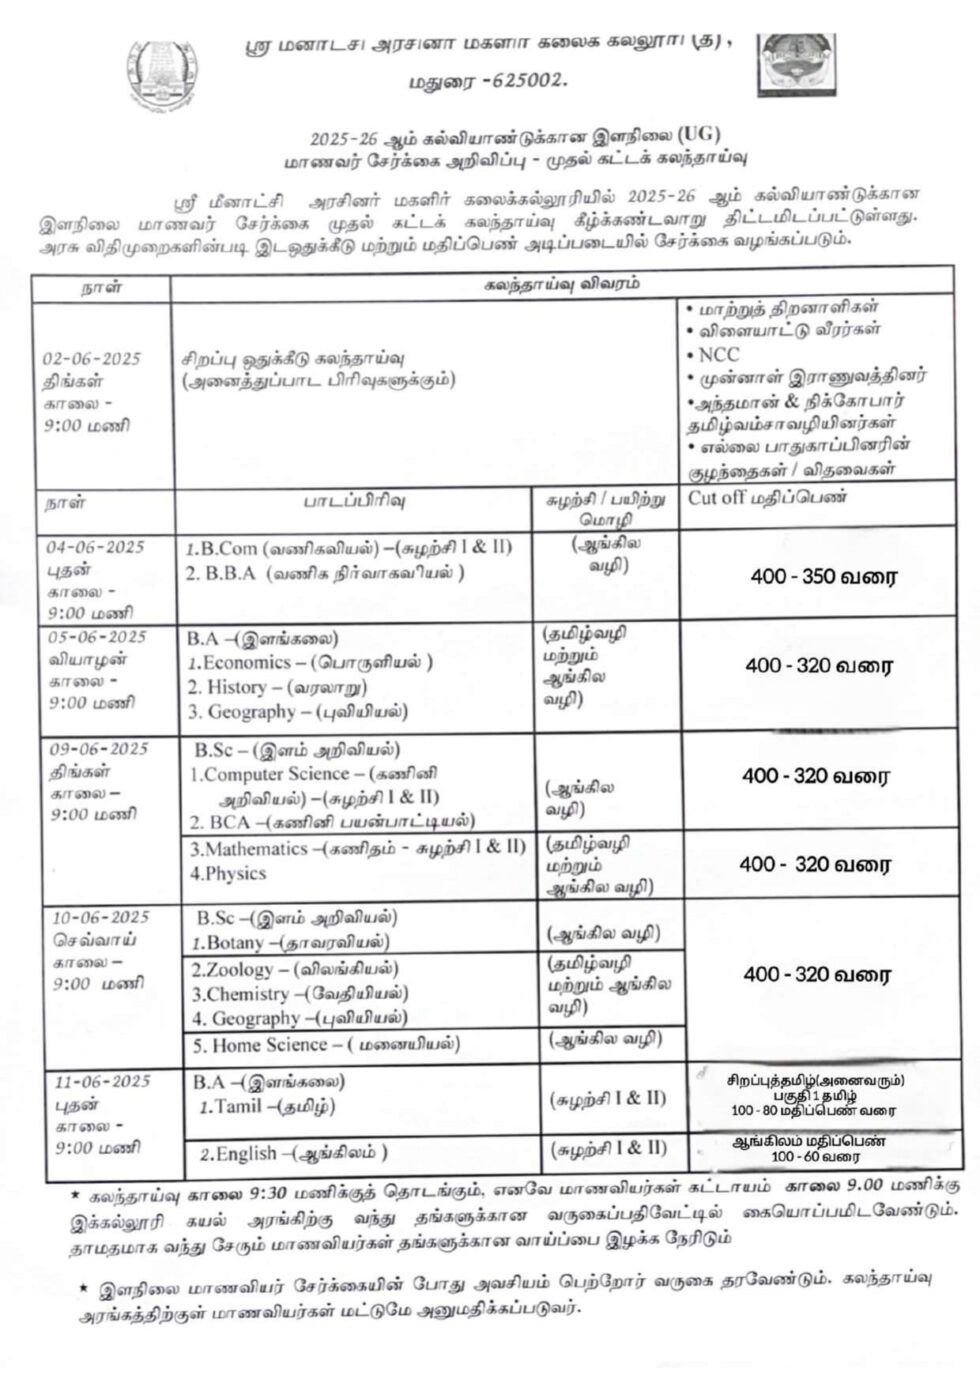 ஸ்ரீ மீனாட்சி அரசினர் மகளிர் கலைக் கல்லூரி (த) ,
மதுரை -625002.
2025-26 ஆம் கல்வியாண்டுக்கான இளநிலை (UG)
மாணவர் சேர்க்கை அறிவிப்பு - முதல் கட்டக் கலந்தாய்வு
ஸ்ரீ மீனாட்சி அரசினர் மகளிர் கலைக்கல்லூரியில் 2025-26 ஆம் கல்வியாண்டுக்கான
இளநிலை மாணவர் சேர்க்கை முதல் கட்டக் கலந்தாய்வு கீழ்க்கண்டவாறு திட்டமிடப்பட்டுள்ளது.
அரசு விதிமுறைகளின்படி இடஒதுக்கீடு மற்றும் மதிப்பெண் அடிப்படையில் சேர்க்கை வழங்கப்படும்.
நாள்
கலந்தாய்வு விவரம்
02-06-2025
திங்கள்
காலை -
9:00 மணி
சிறப்பு ஒதுக்கீடு கலந்தாய்வு
(அனைத்துப்பாட பிரிவுகளுக்கும்)
• மாற்றுத் திறனாளிகள்
• விளையாட்டு வீரர்கள்
• NCC
• முன்னாள் இராணுவத்தினர்
•அந்தமான் & நிக்கோபார்
தமிழ்வம்சாவழியினர்கள்
• எல்லை பாதுகாப்பினரின்
குழந்தைகள் / விதவைகள்
நாள்
பாடப்பிரிவு
சுழற்சி / பயிற்று
மொழி
Cut off மதிப்பெண்
04-06-2025
புதன்
காலை -
9:00 மணி
1.B.Com (வணிகவியல்) –(சுழற்சி I & II)
2. B.B.A (வணிக நிர்வாகவியல் )
(ஆங்கில
வழி)
400 - 350 வரை
05-06-2025
வியாழன்
காலை -
9:00 மணி
B.A –(இளங்கலை)
1.Economics – (பொருளியல் )
2. History – (வரலாறு)
3. Geography – (புவியியல்)
(தமிழ்வழி
மற்றும்
ஆங்கில
வழி)
400 - 320 வரை
09-06-2025
திங்கள்
காலை –
9:00 மணி
B.Sc – (இளம் அறிவியல்)
1.Computer Science – (கணினி
அறிவியல்) –(சுழற்சி I & II)
2. BCA –(கணினி பயன்பாட்டியல்)
(ஆங்கில
வழி)
400 - 320 வரை
3.Mathematics –(கணிதம் - சுழற்சி I & II)
4.Physics
(தமிழ்வழி
மற்றும்
ஆங்கில வழி)
400 - 320 வரை
10-06-2025
செவ்வாய்
காலை –
9:00 மணி
B.Sc –(இளம் அறிவியல்)
1.Botany –(தாவரவியல்)
(ஆங்கில வழி)
2.Zoology – (விலங்கியல்)
3.Chemistry –(வேதியியல்)
4. Geography –(புவியியல்)
(தமிழ்வழி
மற்றும் ஆங்கில
வழி)
5. Home Science – ( மனையியல்)
(ஆங்கில வழி)
400 - 320 வரை
11-06-2025
புதன்
காலை -
9:00 மணி
B.A –(இளங்கலை)
1.Tamil –(தமிழ்)
(சுழற்சி I & II)
சிறப்புத்தமிழ்(அனைவரும்)
பகுதி 1 தமிழ்
100 - 80 மதிப்பெண் வரை
2.English –(ஆங்கிலம் )
(சுழற்சி I & II)
ஆங்கிலம் மதிப்பெண்
100 - 60 வரை
★ கலந்தாய்வு காலை 9:30 மணிக்குத் தொடங்கும், எனவே மாணவியர்கள் கட்டாயம் காலை 9.00 மணிக்கு
இக்கல்லூரி கயல் அரங்கிற்கு வந்து தங்களுக்கான வருகைப்பதிவேட்டில் கையொப்பமிடவேண்டும்.
தாமதமாக வந்து சேரும் மாணவியர்கள் தங்களுக்கான வாய்ப்பை இழக்க நேரிடும்
★ இளநிலை மாணவியர் சேர்க்கையின் போது அவசியம் பெற்றோர் வருகை தரவேண்டும். கலந்தாய்வு
அரங்கத்திற்குள் மாணவியர்கள் மட்டுமே அனுமதிக்கப்படுவர்.